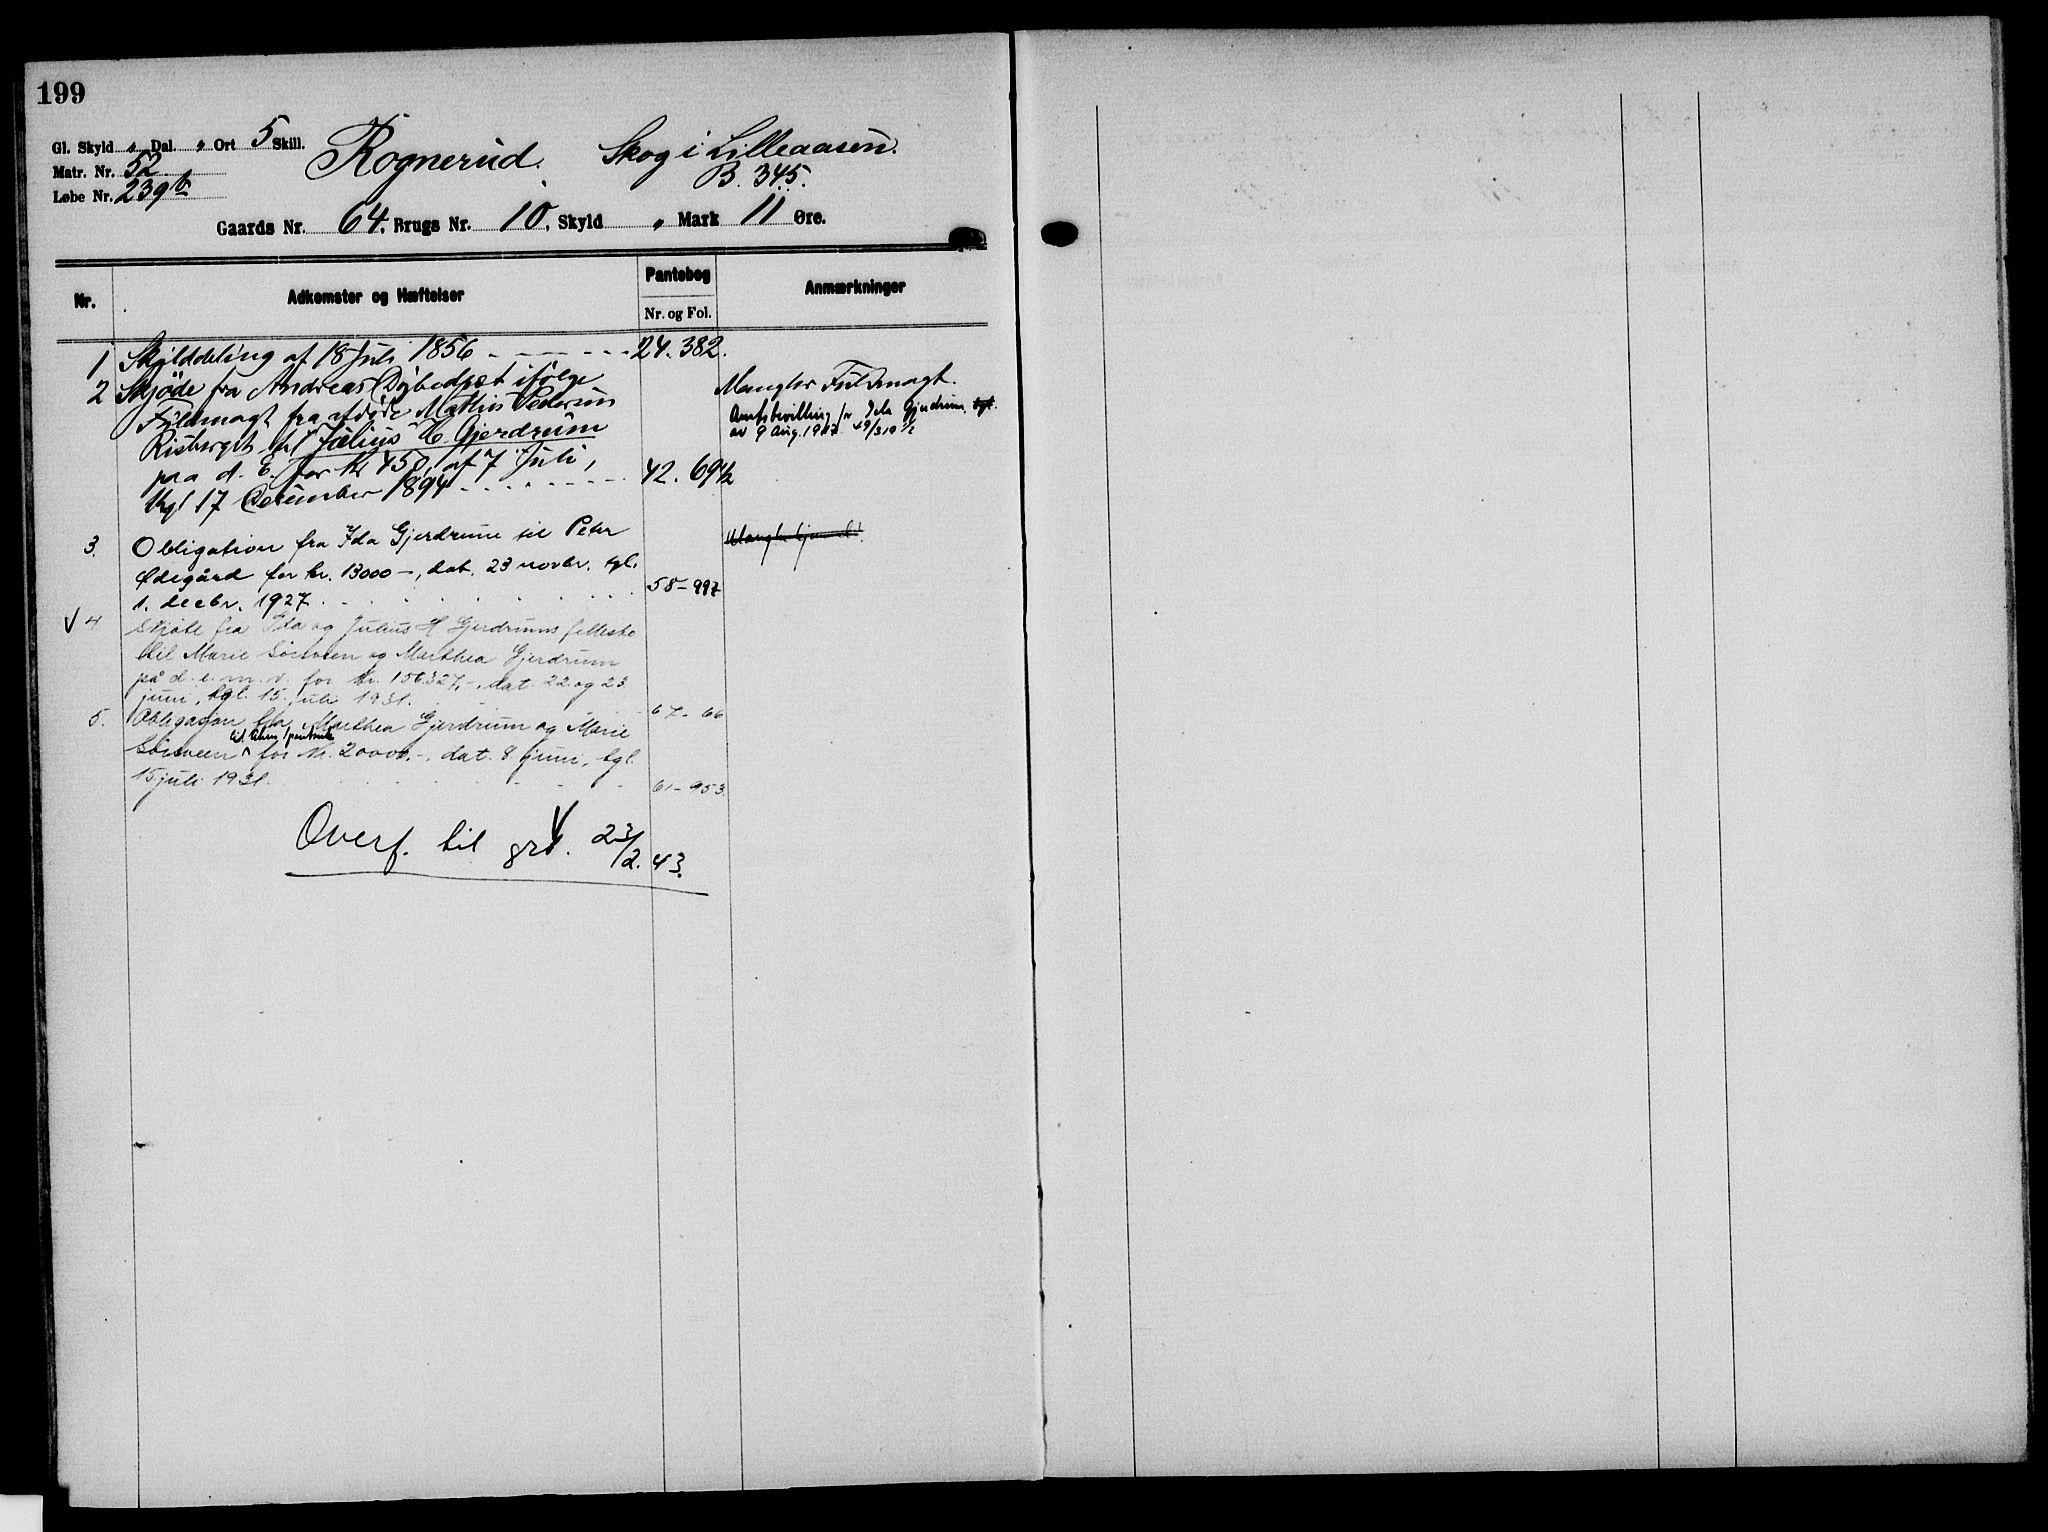 199
Gl. Skyld " Dal. " Ort 5 Skill.
Rognerud. Skog i Lilleaasen.
Matr. Nr. 52
B. 345.
Løbe Nr. 239b
Gaards Nr. 64, Brugs Nr. 10, Skyld " Mark 11 Øre.
Nr. Adkomster og Hæftelser Pantebog Nr. og Fol. Anmærkninger
1 Skylddeling af 18 Juli 1856 - - - - - 24. 382.
2 Skjöde fra Andreas ifölge
Fuldmagt fra afdöde Mathis Pedersen
til Julius C. Gjerdrum
paa d. E. for Kr 450, af 7 Juli,
tgl 17 December 1894 - - - - - - 42. 69
Mangler Fuldmagt.
Amtsbevilling for Ida Gjerdrum, tgl.
av 9 Aug. 1917
3. Obligation fra Ida Gjerdrum til Peter
Ødegård for kr. 13000-, dat. 23 novbr. tgl.
1. decbr. 1927 . . . . . . 58-997
Mangler hjemmel.
V 4 Skjøte fra Ida og Julius H Gjerdrums fellesbo
til Marie Sörsveen og Marthea Gjerdrum
på d. e. m. v. for kr. 156327,-, dat. 22 og 23
juni, tgl. 15. juli 1931. 67-66
5. Obligasjon fra Marthea Gjerdrum og Marie
Sörsveen for kr. 20000.-, dat. 8 juni, tgl.
15 juli 1931. 61-953.
Overf. til grb. 23/2. 43.